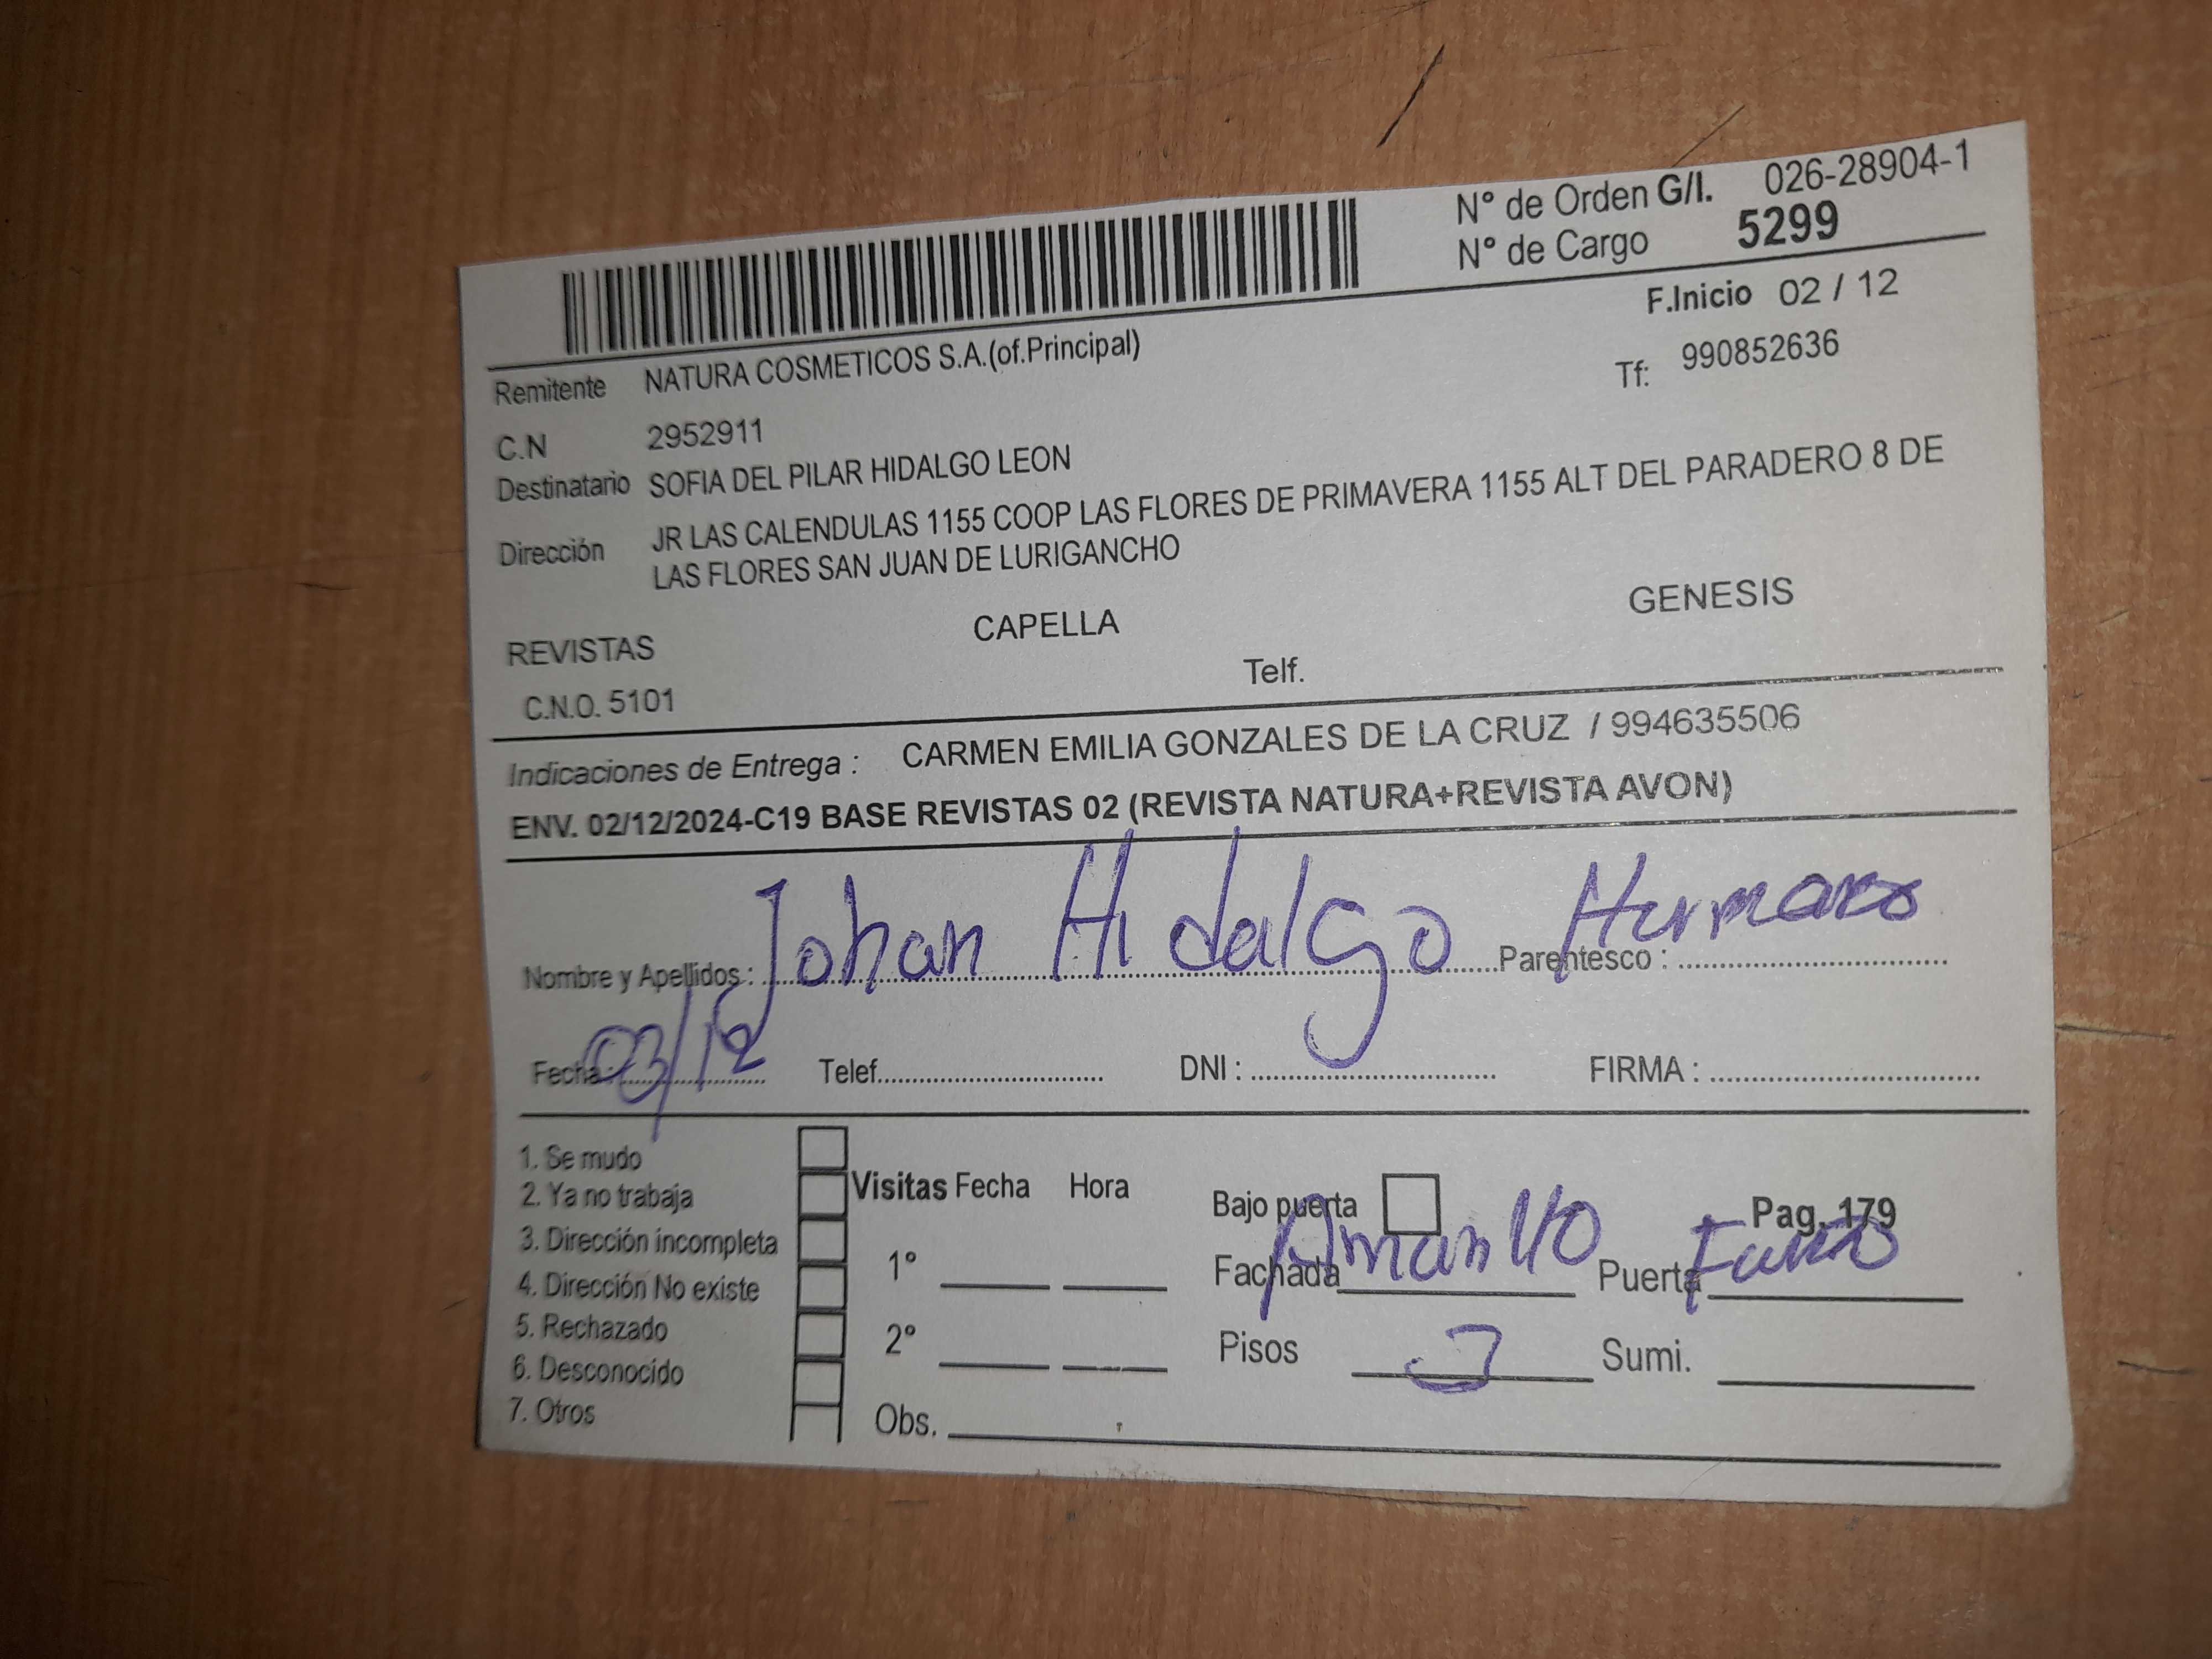 N° de Orden G/I. 026-28904-1
N° de Cargo 5299
F.Inicio 02 / 12
Remitente NATURA COSMETICOS S.A.(of.Principal)
Tf: 990852636
C.N 2952911
Destinatario SOFIA DEL PILAR HIDALGO LEON
Dirección JR LAS CALENDULAS 1155 COOP LAS FLORES DE PRIMAVERA 1155 ALT DEL PARADERO 8 DE
LAS FLORES SAN JUAN DE LURIGANCHO
REVISTAS CAPELLA GENESIS
C.N.O. 5101 Telf.
Indicaciones de Entrega : CARMEN EMILIA GONZALES DE LA CRUZ / 994635506
ENV. 02/12/2024-C19 BASE REVISTAS 02 (REVISTA NATURA+REVISTA AVON)
Nombre y Apellidos : Johan Hidalgo Parentesco : Hermano
Fecha : 03/12 Telef. DNI : FIRMA :
1. Se mudo
2. Ya no trabaja
3. Dirección incompleta
4. Dirección No existe
5. Rechazado
6. Desconocido
7. Otros
Visitas Fecha Hora
1°
2°
Obs.
Bajo puerta Pag. 179
Fachada Amarillo Puerta
Pisos 3 Sumi.